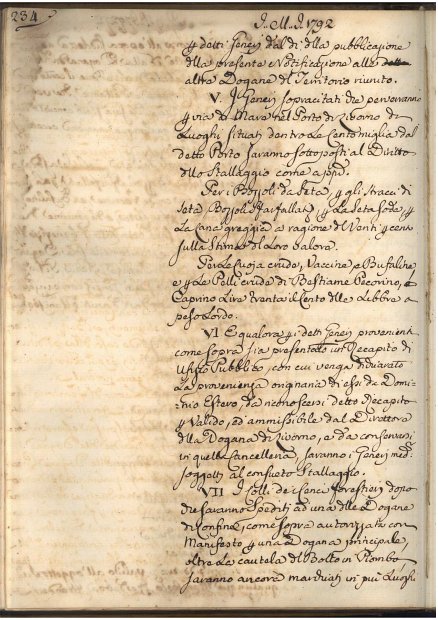 234.
I. M. I. 1792
p detti Generi dal dì dlla pubblicazione
dlla presente Notificazione alle
altre Dogane del Territorio riunito.
V. I Generi sopracitati che perverranno
p via di Mare nel Porto di Livorno da
Luoghi situati dentro le Cento miglia dal
detto Porto saranno sottoposti al Diritto
dllo Stallaggio come app.
Per i Bozzoli da Seta, p gli stracci di
Seta, Bozzoli sfarfallati, p la Seta soda, p
la Lana greggia a ragione di Venti p cento
sulla Stima di loro Valore.
Per le Cuoja crude, Vaccine e Bufaline
e p le Pelli crude di Bestiame Pecorino, e
Caprino Lire trenta il Cento dlle Libbre a
peso lordo.
VI Equalora p i detti Generi provenienti
come sopra sia presentato un Recapito di
Ufizio Pubblico, con cui venga dichiarato
la provenienza originaria di essi da Domi-
nio Estero, da riconoscersi detto Recapito
p Valido, ed ammissibile dal Direttore
dlla Dogana di Livorno, e da conservarsi
in quella Cancelleria, saranno i Generi med.
soggetti al consueto Stallaggio.
VII I Colli dei Generi forestieri dopo
che saranno spediti ad una dlle Dogane
di Confine, come sopra autorizzate con
Manifesto p una Dogana principale,
oltre la cautela del Bollo in Piombo
saranno ancora marchiati in più Luoghi